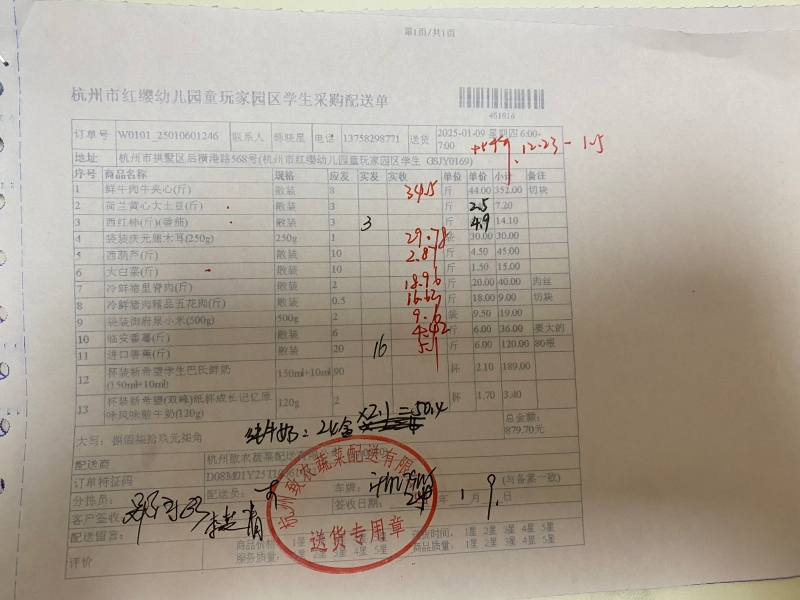 第1页/共1页
杭州市红缨幼儿园童玩家园区学生采购配送单
451616
订单号 W0101_25010601246 联系人 韩晓星 电话 13758298771 送货 2025-01-09 星期四 6:00-7:00
12.23 - 1.5
地址 杭州市拱墅区后横港路568号(杭州市红缨幼儿园童玩家园区学生 GSJY0169)
序号 商品名称 规格 应发 实发 实收 单位 单价 小计 备注
1 鲜牛肉牛夹心(斤) 散装 8 34.5 斤 44.00 352.00 切块
2 荷兰黄心大土豆(斤) 散装 3 斤 2.5 7.20
3 西红柿(斤)(番茄) 散装 3 3 斤 4.9 14.10
4 袋装庆元黑木耳(250g) 250g 1 29.78 袋 30.00 30.00
5 西葫芦(斤) 散装 10 2.87 斤 4.50 45.00
6 大白菜(斤) 散装 10 斤 1.50 15.00
7 冷鲜猪里脊肉(斤) 散装 2 18.96 斤 20.00 40.00 肉丝
8 冷鲜猪肉精品五花肉(斤) 散装 0.5 斤 18.00 9.00 切块
9 袋装御府泉小米(500g) 500g 2 袋 9.50 19.00
10 临安番薯(斤) 散装 6 斤 6.00 36.00 要大的
11 进口香蕉(斤) 散装 20 16 5.1 斤 6.00 120.00 80根
12 杯装新希望学生巴氏鲜奶(150ml+10ml) 150ml+10ml 90 杯 2.10 189.00
13 杯装新希望(双峰)纸杯成长记忆原味风味酸牛奶(120g) 120g 2 杯 1.70 3.40
纯牛奶: 24盒 ×2.1=50.4
大写: 捌佰柒拾玖元柒角 总金额: 879.70元
配送商 杭州散农蔬菜配送有限
订单特征码 D08M01Y25T
分拣员: 配送员: 车牌: (与备案一致)
客户签收 签收日期: 年 1 月 9 日
配送留言:
评价 商品价格: 1星 2星 3星 4星 5星 送货时间: 1星 2星 3星 4星 5星
服务质量: 1星 2星 3星 4星 5星 商品质量: 1星 2星 3星 4星 5星
杭州散农蔬菜配送有限
送货专用章